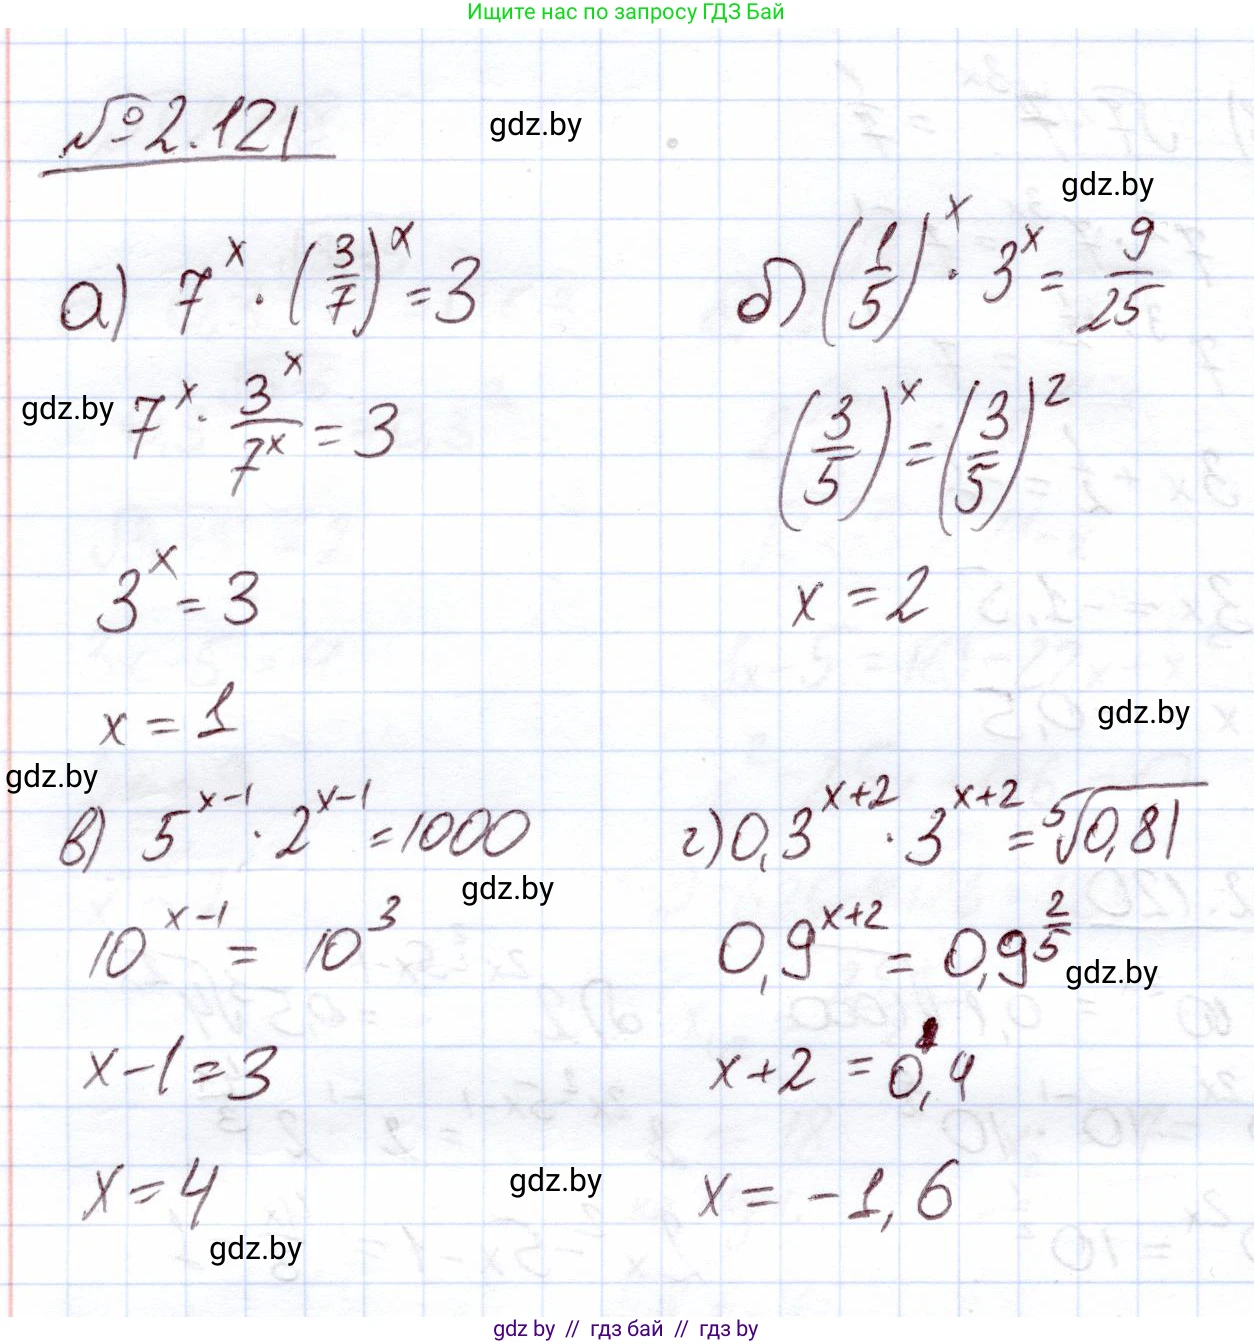 Ищите нас по запросу ГДЗ Бай
№2.121
gdz.by
gdz.by
а) 7^x · (3/7)^x = 3
gdz.by
7^x · 3^x/7^x = 3
3^x = 3
x = 1
б) (1/5)^x · 3^x = 9/25
(3/5)^x = (3/5)^2
x = 2
gdz.by
gdz.by
в) 5^(x-1) · 2^(x-1) = 1000
gdz.by
10^(x-1) = 10^3
x-1 = 3
x = 4
gdz.by
г) 0,3^(x+2) · 3^(x+2) = ⁵√0,81
0,9^(x+2) = 0,9^(2/5)
gdz.by
x+2 = 0,4
x = -1,6
gdz.by
gdz by // гдз бай // гдз by